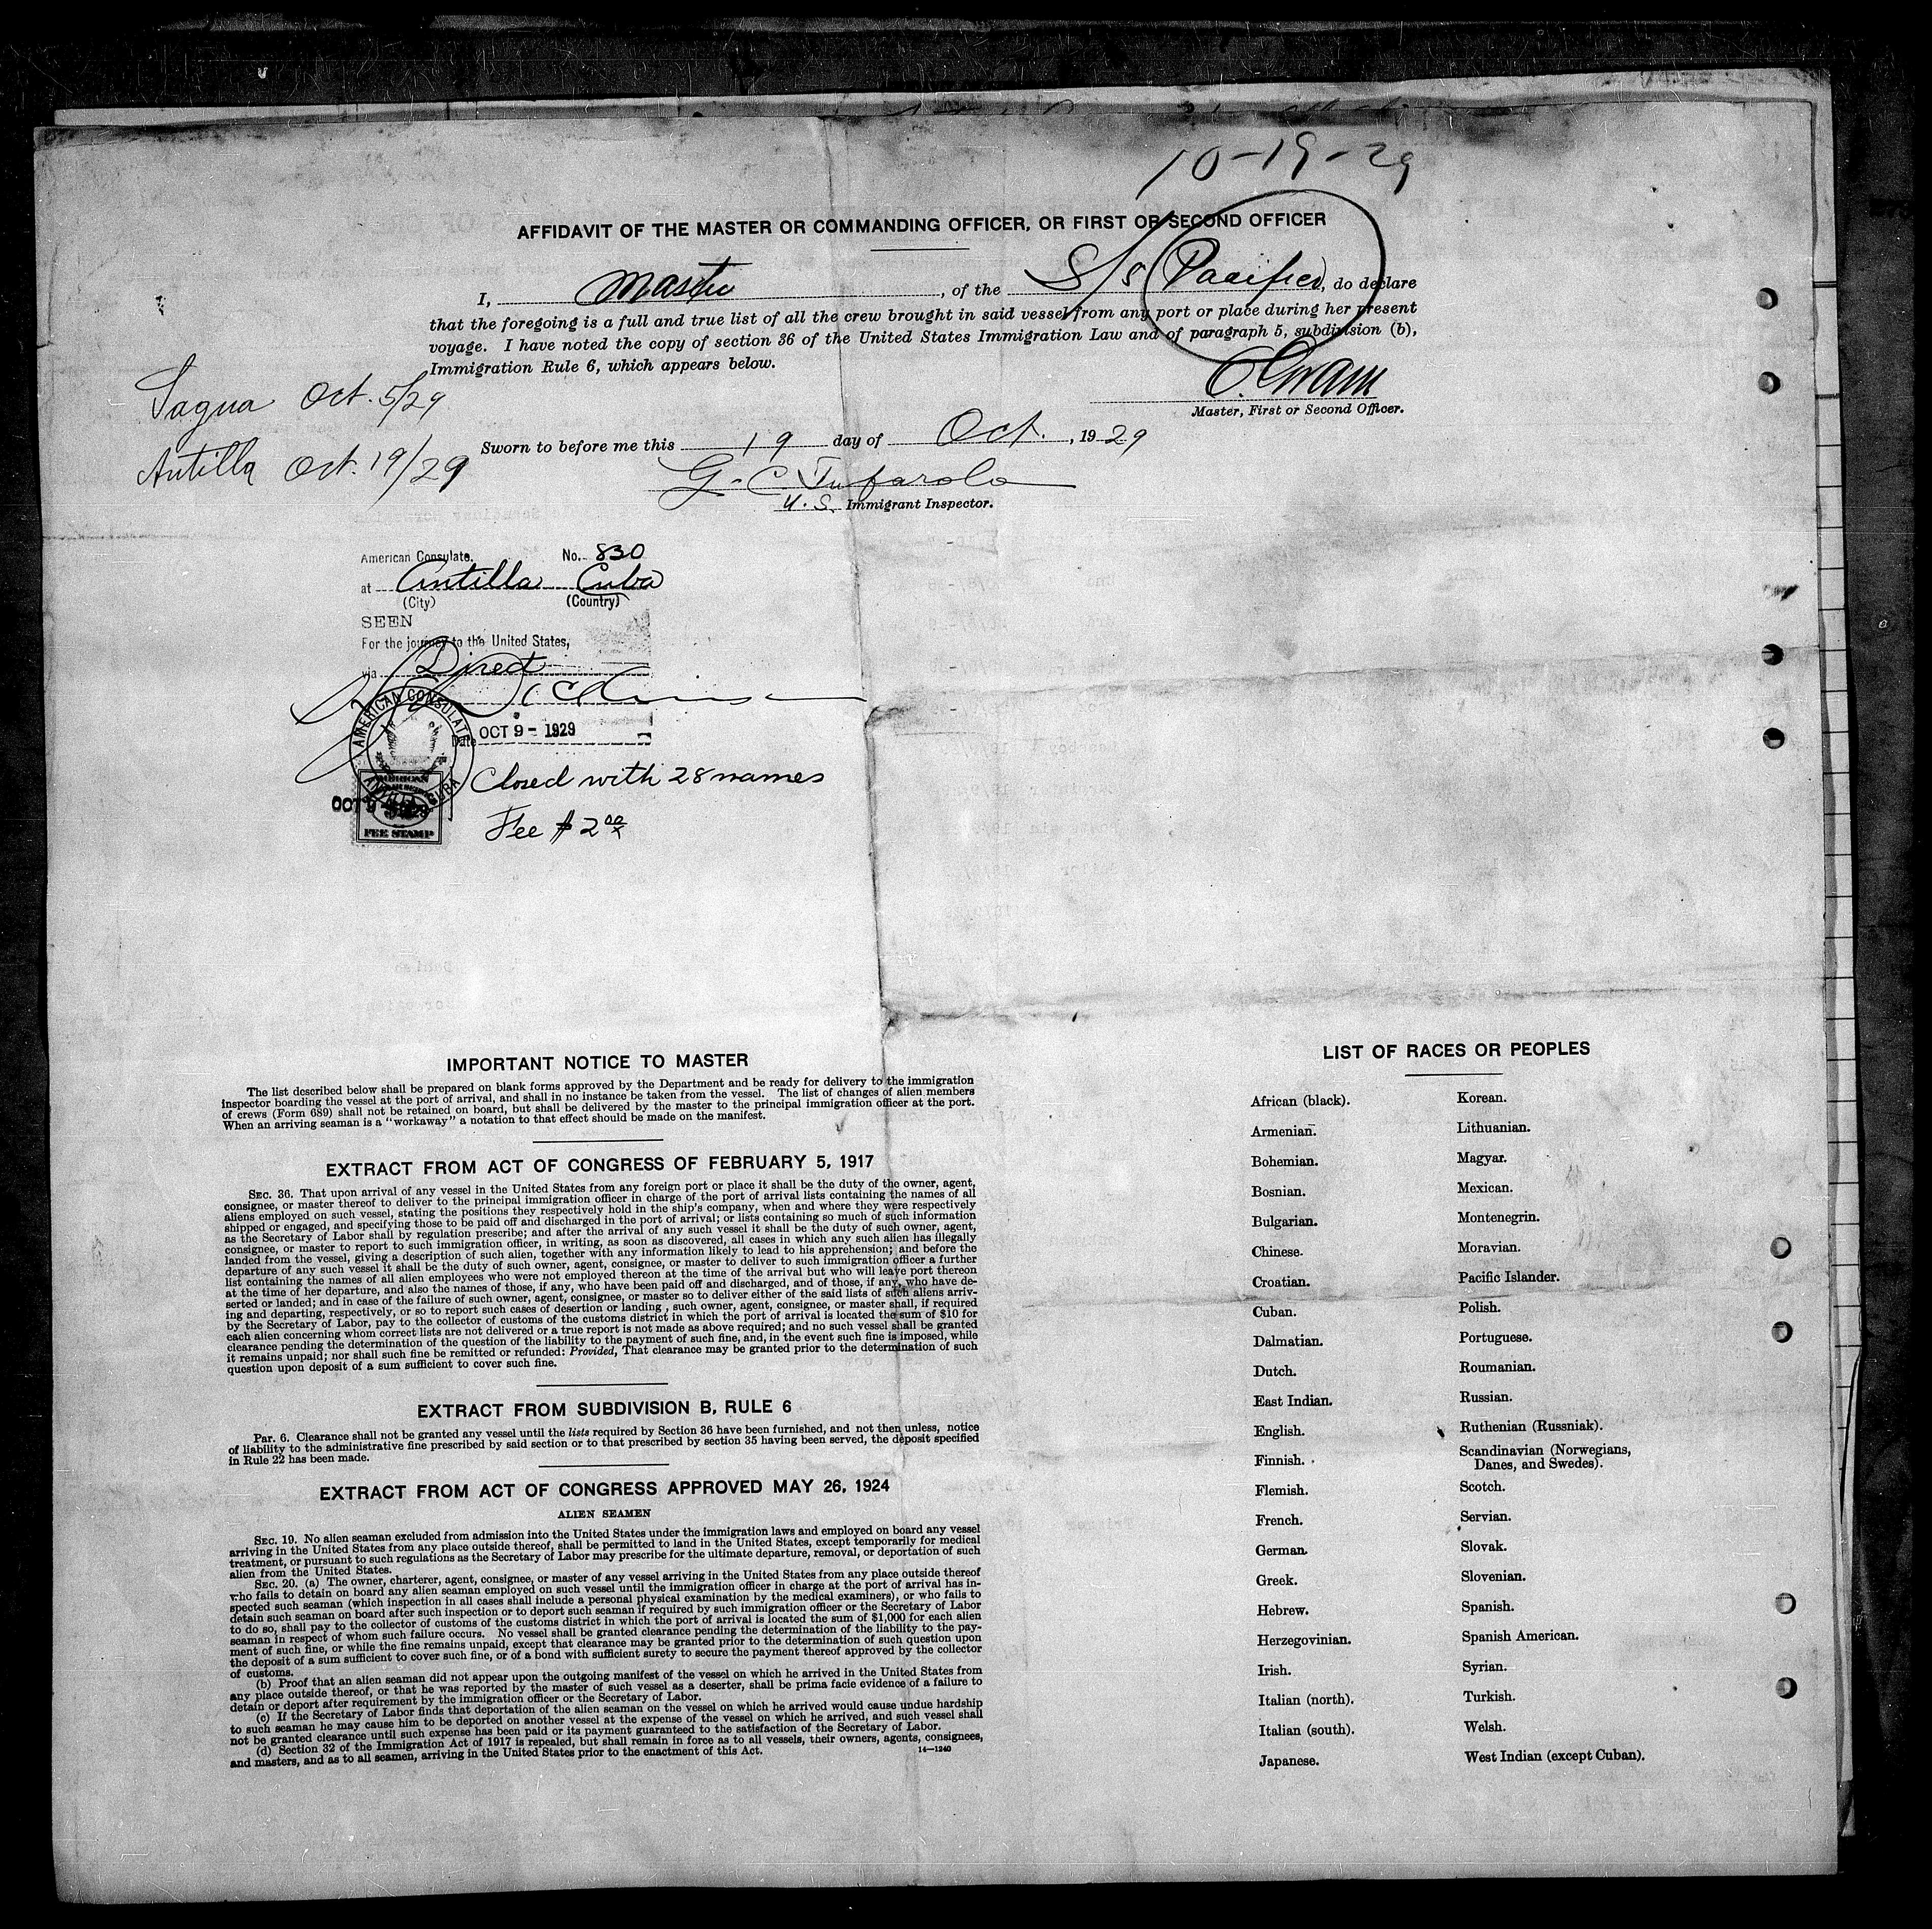 10-19-29
AFFIDAVIT OF THE MASTER OR COMMANDING OFFICER, OR FIRST OR SECOND OFFICER
I, Master, of the S/S Pacific, do declare
that the foregoing is a full and true list of all the crew brought in said vessel from any port or place during her present
voyage. I have noted the copy of section 36 of the United States Immigration Law and of paragraph 5, subdivision (b),
Immigration Rule 6, which appears below.
Master, First or Second Officer.
Sagua Oct. 5/29
Antilla Oct. 19/29
Sworn to before me this 19 day of Oct., 1929
G. C. Tufarolo
U. S. Immigrant Inspector.
American Consulate. No. 830
at Antilla Cuba
(City) (Country)
SEEN
For the journey to the United States,
via Direct
AMERICAN CONSULATE
ANTILLA CUBA
Date OCT 9 - 1929
Closed with 28 names
OCT 9 - 1929
AMERICAN
FEE STAMP
Fee $ 2 00/x
IMPORTANT NOTICE TO MASTER
The list described below shall be prepared on blank forms approved by the Department and be ready for delivery to the immigration
inspector boarding the vessel at the port of arrival, and shall in no instance be taken from the vessel. The list of changes of alien members
of crews (Form 689) shall not be retained on board, but shall be delivered by the master to the principal immigration officer at the port.
When an arriving seaman is a "workaway" a notation to that effect should be made on the manifest.
EXTRACT FROM ACT OF CONGRESS OF FEBRUARY 5, 1917
SEC. 36. That upon arrival of any vessel in the United States from any foreign port or place it shall be the duty of the owner, agent,
consignee, or master thereof to deliver to the principal immigration officer in charge of the port of arrival lists containing the names of all
aliens employed on such vessel, stating the positions they respectively hold in the ship's company, when and where they were respectively
shipped or engaged, and specifying those to be paid off and discharged in the port of arrival; or lists containing so much of such information
as the Secretary of Labor shall by regulation prescribe; and after the arrival of any such vessel it shall be the duty of such owner, agent,
consignee, or master to report to such immigration officer, in writing, as soon as discovered, all cases in which any such alien has illegally
landed from the vessel, giving a description of such alien, together with any information likely to lead to his apprehension; and before the
departure of any such vessel it shall be the duty of such owner, agent, consignee, or master to deliver to such immigration officer a further
list containing the names of all alien employees who were not employed thereon at the time of the arrival but who will leave port thereon
at the time of her departure, and also the names of those, if any, who have been paid off and discharged, and of those, if any, who have de-
serted or landed; and in case of the failure of such owner, agent, consignee, or master so to deliver either of the said lists of such aliens arriv-
ing and departing, respectively, or so to report such cases of desertion or landing, such owner, agent, consignee, or master shall, if required
by the Secretary of Labor, pay to the collector of customs of the customs district in which the port of arrival is located the sum of $10 for
each alien concerning whom correct lists are not delivered or a true report is not made as above required; and no such vessel shall be granted
clearance pending the determination of the question of the liability to the payment of such fine, and, in the event such fine is imposed, while
it remains unpaid; nor shall such fine be remitted or refunded: Provided, That clearance may be granted prior to the determination of such
question upon deposit of a sum sufficient to cover such fine.
EXTRACT FROM SUBDIVISION B, RULE 6
Par. 6. Clearance shall not be granted any vessel until the lists required by Section 36 have been furnished, and not then unless, notice
of liability to the administrative fine prescribed by said section or to that prescribed by section 35 having been served, the deposit specified
in Rule 22 has been made.
EXTRACT FROM ACT OF CONGRESS APPROVED MAY 26, 1924
ALIEN SEAMEN
SEC. 19. No alien seaman excluded from admission into the United States under the immigration laws and employed on board any vessel
arriving in the United States from any place outside thereof, shall be permitted to land in the United States, except temporarily for medical
treatment, or pursuant to such regulations as the Secretary of Labor may prescribe for the ultimate departure, removal, or deportation of such
alien from the United States.
SEC. 20. (a) The owner, charterer, agent, consignee, or master of any vessel arriving in the United States from any place outside thereof
who fails to detain on board any alien seaman employed on such vessel until the immigration officer in charge at the port of arrival has in-
spected such seaman (which inspection in all cases shall include a personal physical examination by the medical examiners), or who fails to
detain such seaman on board after such inspection or to deport such seaman if required by such immigration officer or the Secretary of Labor
to do so, shall pay to the collector of customs of the customs district in which the port of arrival is located the sum of $1,000 for each alien
seaman in respect of whom such failure occurs. No vessel shall be granted clearance pending the determination of the liability to the pay-
ment of such fine, or while the fine remains unpaid, except that clearance may be granted prior to the determination of such question upon
the deposit of a sum sufficient to cover such fine, or of a bond with sufficient surety to secure the payment thereof approved by the collector
of customs.
(b) Proof that an alien seaman did not appear upon the outgoing manifest of the vessel on which he arrived in the United States from
any place outside thereof, or that he was reported by the master of such vessel as a deserter, shall be prima facie evidence of a failure to
detain or deport after requirement by the immigration officer or the Secretary of Labor.
(c) If the Secretary of Labor finds that deportation of the alien seaman on the vessel on which he arrived would cause undue hardship
to such seaman he may cause him to be deported on another vessel at the expense of the vessel on which he arrived, and such vessel shall
not be granted clearance until such expense has been paid or its payment guaranteed to the satisfaction of the Secretary of Labor.
(d) Section 32 of the Immigration Act of 1917 is repealed, but shall remain in force as to all vessels, their owners, agents, consignees,
and masters, and as to all seamen, arriving in the United States prior to the enactment of this Act.
14—1240
LIST OF RACES OR PEOPLES
African (black).
Armenian.
Bohemian.
Bosnian.
Bulgarian.
Chinese.
Croatian.
Cuban.
Dalmatian.
Dutch.
East Indian.
English.
Finnish.
Flemish.
French.
German.
Greek.
Hebrew.
Herzegovinian.
Irish.
Italian (north).
Italian (south).
Japanese.
Korean.
Lithuanian.
Magyar.
Mexican.
Montenegrin.
Moravian.
Pacific Islander.
Polish.
Portuguese.
Roumanian.
Russian.
Ruthenian (Russniak).
Scandinavian (Norwegians,
Danes, and Swedes).
Scotch.
Servian.
Slovak.
Slovenian.
Spanish.
Spanish American.
Syrian.
Turkish.
Welsh.
West Indian (except Cuban).